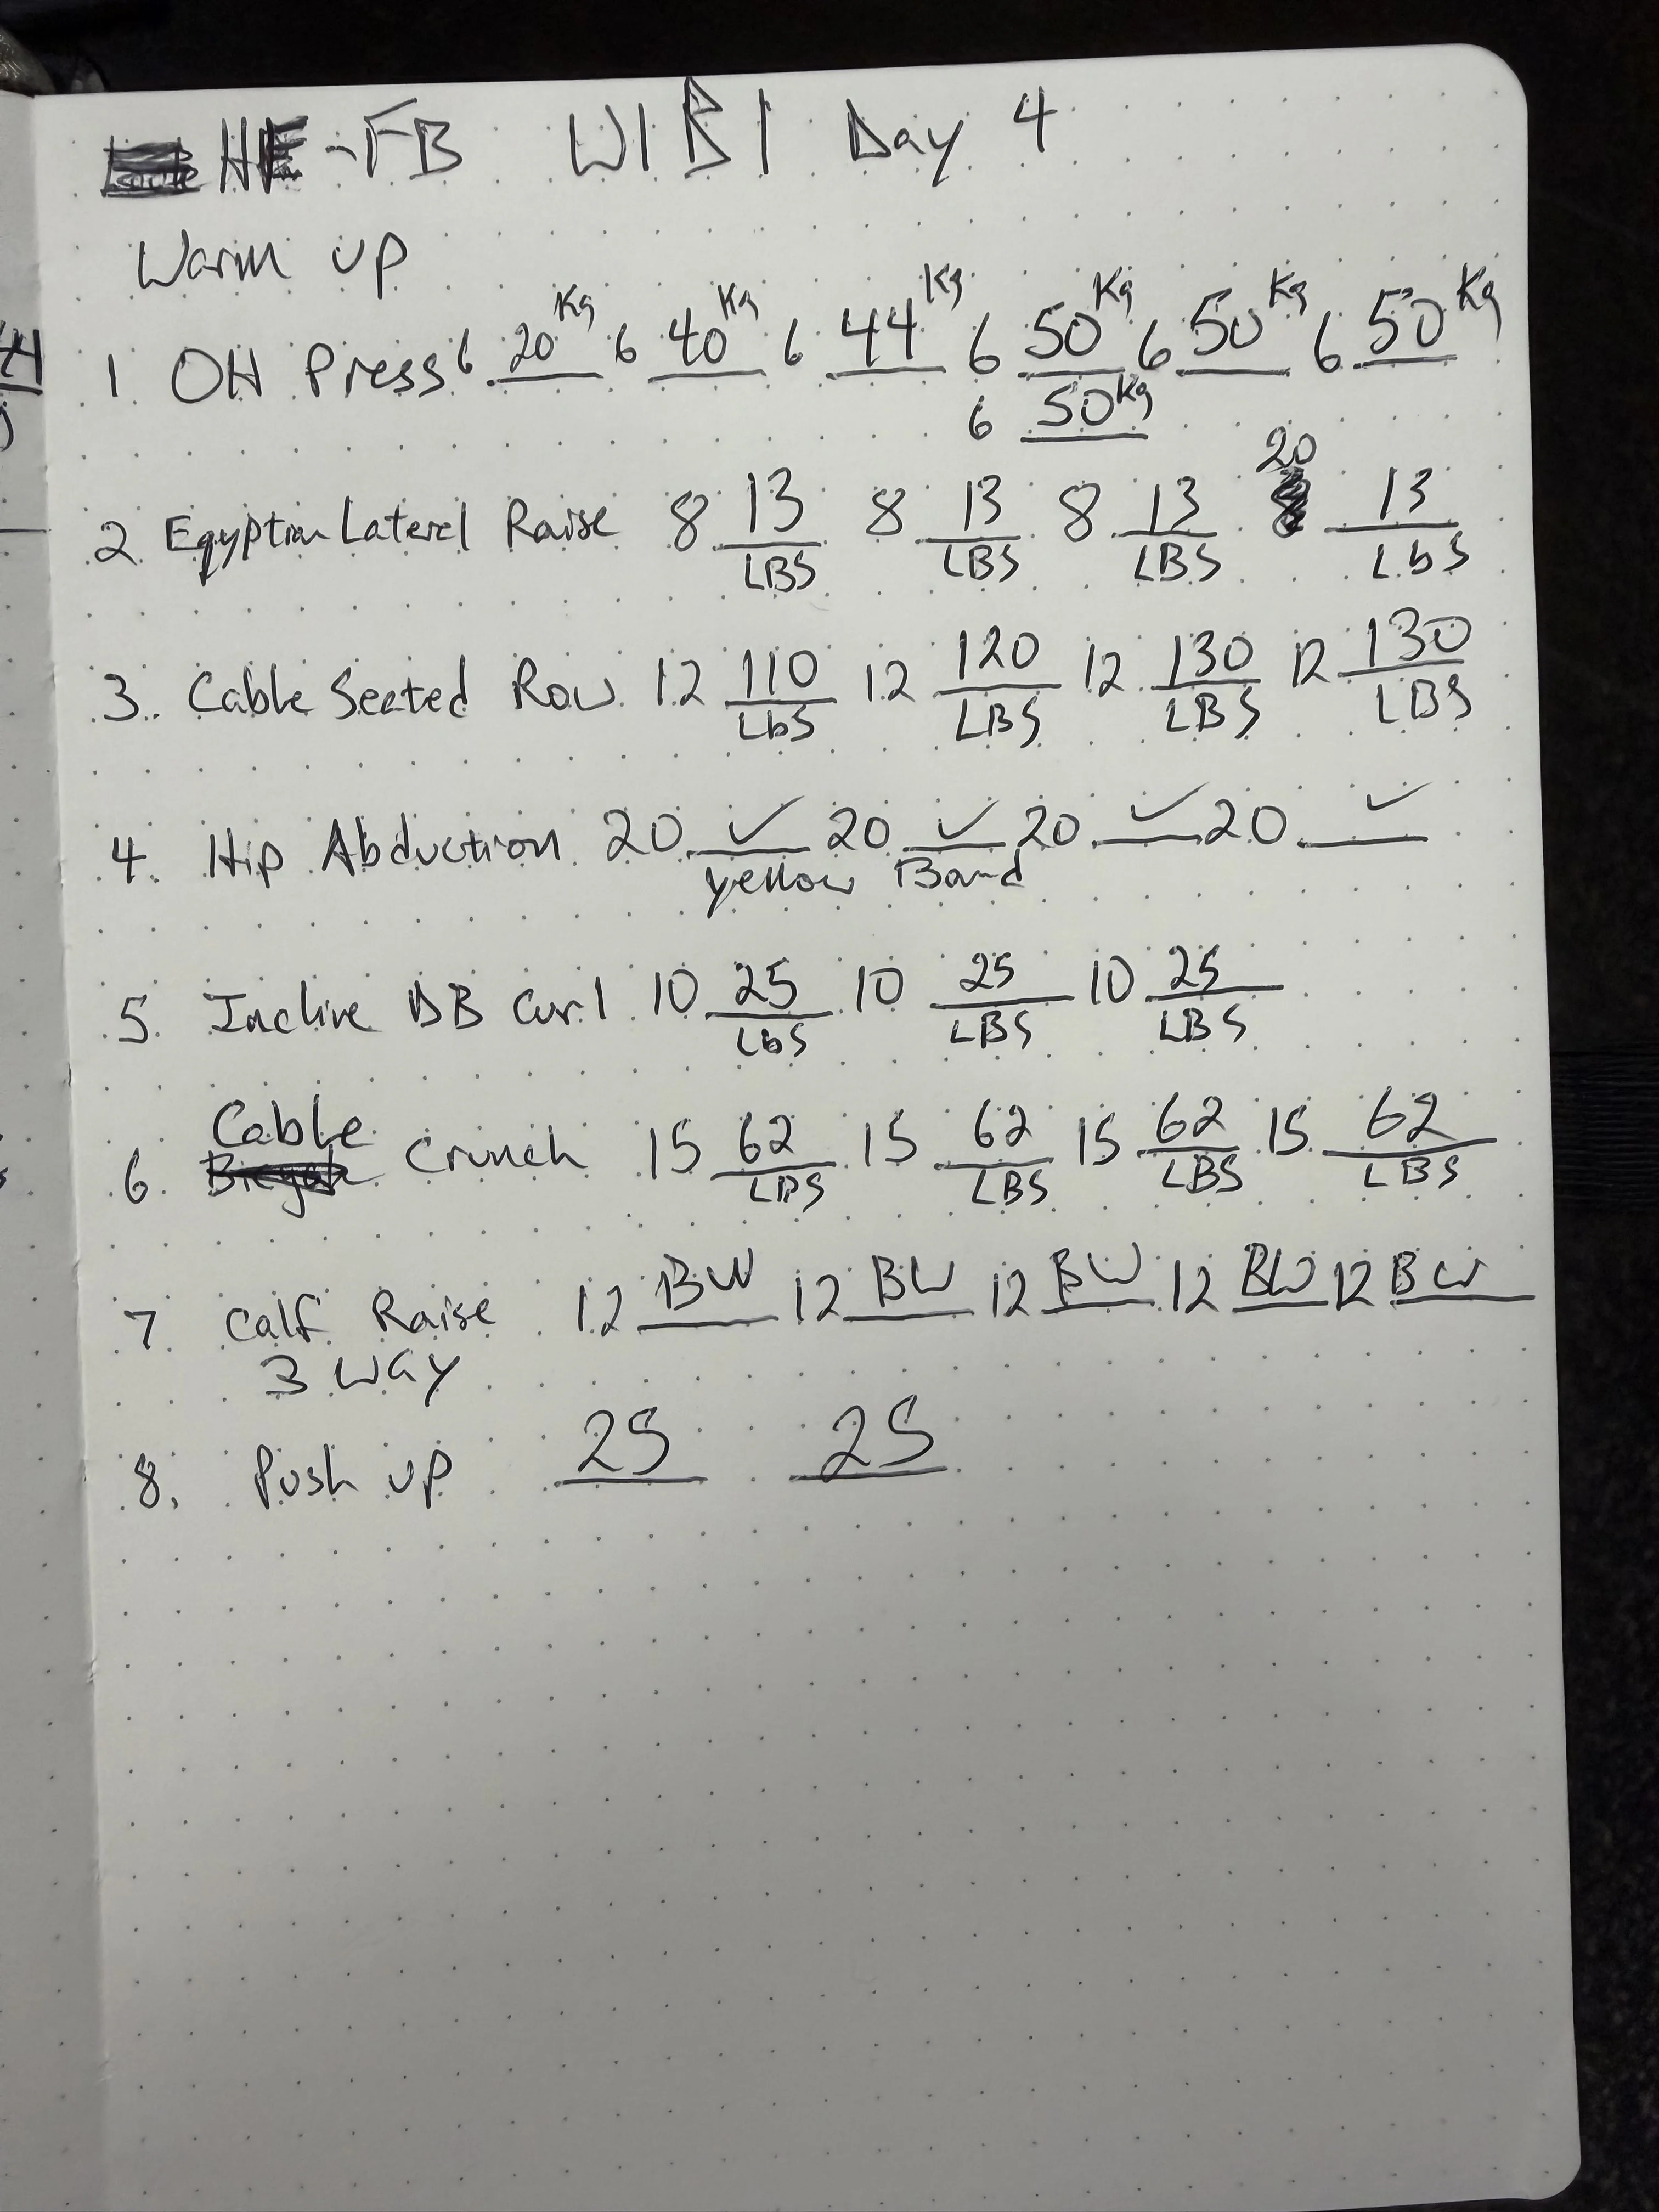 HF-FB W1B1 Day 4
Warm up
1 OH Press 6 20 Kg 6 40 Kg 6 44 Kg 6 50 Kg 6 50 Kg 6 50 Kg
6 50 Kg
20
2 Egyptian Lateral Raise 8 13 8 13 8 13 13
LBS LBS LBS Lbs
3. Cable Seated Row 12 110 12 120 12 130 12 130
Lbs LBS LBS LBS
4. Hip Abduction 20 ✓ 20 ✓ 20 ✓ 20 ✓
yellow Band
5. Incline DB Curl 10 25 10 25 10 25
Lbs LBS LBS
Cable
6. Crunch 15 62 15 62 15 62 15 62
LBS LBS LBS LBS
7 Calf Raise 12 BW 12 BW 12 BW 12 BW 12 BW
3 WAY
8. Push up 25 25